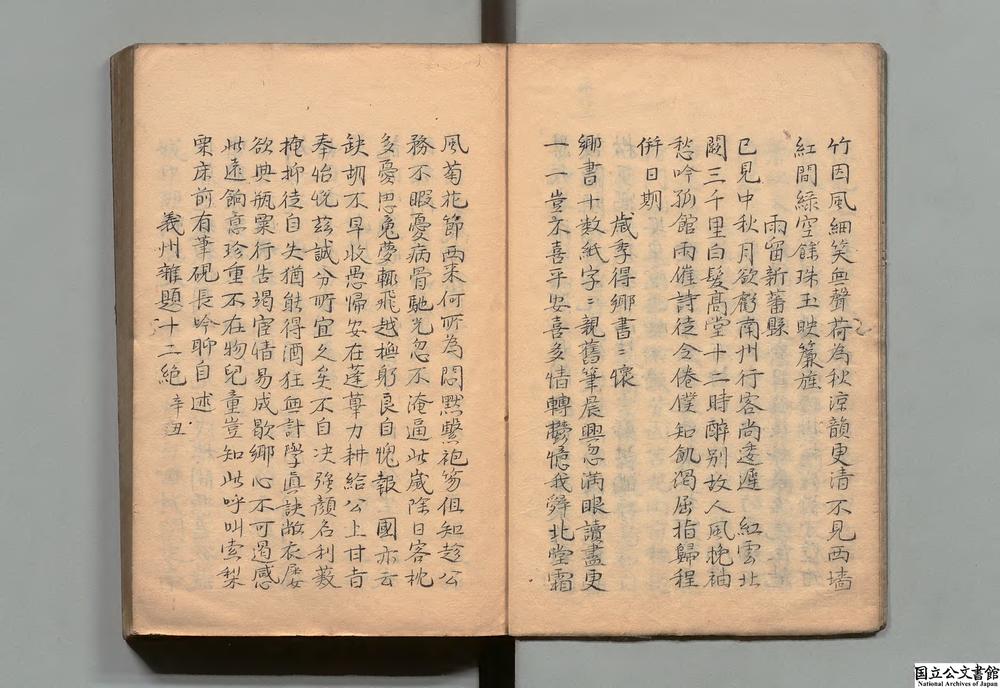 竹因風細笑無聲荷為秋涼韻更清不見西墻
紅間綠空餘珠玉映簾旌
雨留新蕃縣
已見中秋月欲虧南州行客尚逶遲 紅雲北
闕三千里白髮高堂十二時醉別故人風挽袖
愁吟孤館雨催詩徒令倦僕知飢渴屈指歸程
併日期
歲季得鄉書々懷
鄉書十數紙字々親舊筆晨興忽滿眼讀盡更
一一豈不喜平安喜多情轉鬱憶我辭北堂霜
風菊花節西來何所為悶默繫袍笏但知趁公
務不暇憂病骨馳光忽不淹逼此歲除日客枕
多憂思魂夢輒飛越撫躬良自愧報 國亦云
缺胡不早收愚歸安在蓬蓽力耕給公上甘旨
奉怡悅茲誠分所宜久矣不自决強顏名利藪
掩抑徒自失猶能得酒狂無計學真訣敝衣屢
欲典瓶粟行告竭宦情易成歇鄉心不可遏感
此遠餉意珍重不在物兒童豈知此呼叫索梨
栗床前有筆硯長吟聊自述
義州雜題十二絕 辛丑
国立公文書館
National Archives of Japan